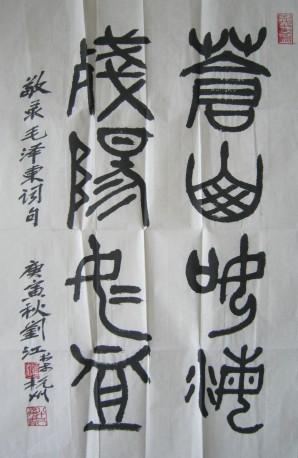 蒼山如海
殘陽如血
敬录毛泽东词句
庚寅秋劉江书于杭州